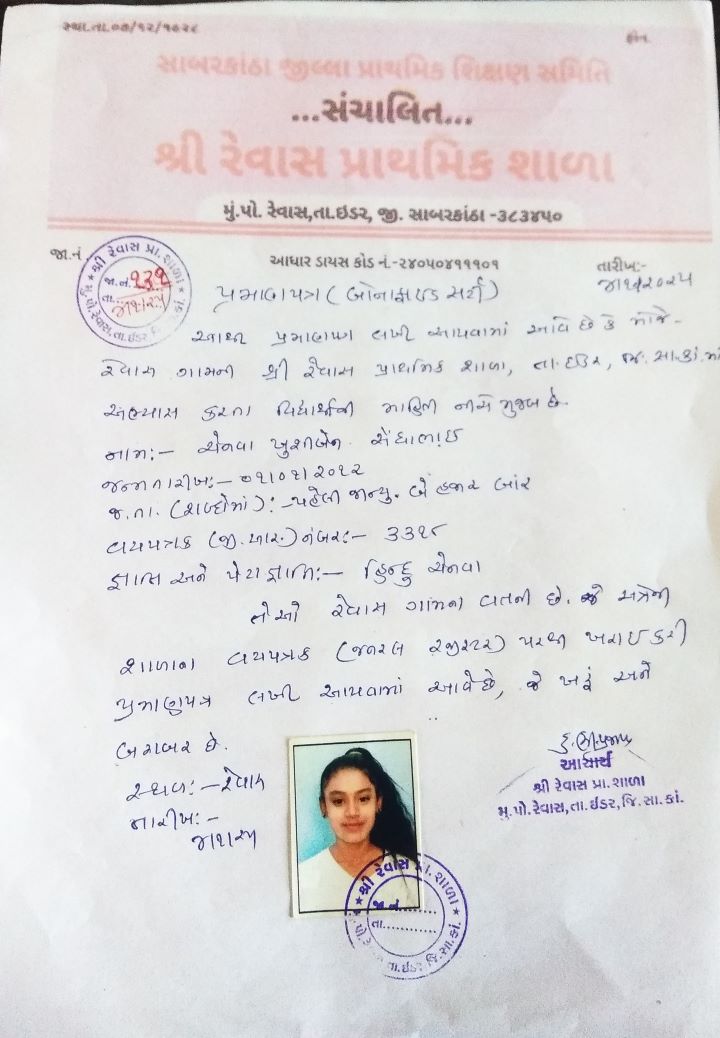 સ્થા.તા.૦૭/૧૨/૧૯૨૮
ફોન.
સાબરકાંઠા જીલ્લા પ્રાથમિક શિક્ષણ સમિતિ
...સંચાલિત...
શ્રી રેવાસ પ્રાથમિક શાળા
મું.પો. રેવાસ,તા.ઇડર, જી. સાબરકાંઠા -૩૮૩૪૫૦
જા.નં
શ્રી રેવાસ પ્રા. શાળા
જા.નં. ૧૩૧
તા.
મુ.પો.રેવાસ,તા.ઇડર,જિ.સા.કાં.
આધાર ડાયસ કોડ નં.-૨૪૦૫૦૪૧૧૧૦૧
તારીખ:-
પ્રમાણપત્ર ( બોનાફાઇડ સર્ટી )
આથી પ્રમાણપત્ર લખી આપવામાં આવે છે કે મોજે-
રેવાસ ગામની શ્રી રેવાસ પ્રાથમિક શાળા, તા.ઇડર, જિ.સા.કાં.માં
અભ્યાસ કરતા વિદ્યાર્થીની માહિતી નીચે મુજબ છે.
નામ:- સેનવા ખુશીબેન સેંધાભાઇ
જન્મ તારીખ:- ૦૧/૦૧/૨૦૧૨
જ.તા. (શબ્દોમાં):- પહેલી જાન્યુ. બે હજાર બાર
વયપત્રક (જી.આર.) નંબર:- ૩૩૧૮
જ્ઞાતિ અને પેટાજ્ઞાતિ:- હિન્દુ સેનવા
તેઓ રેવાસ ગામના વતની છે. જે અત્રેની
શાળાના વયપત્રક (જનરલ રજીસ્ટર) પરથી ખરાઇ કરી
પ્રમાણપત્ર લખી આપવામાં આવે છે, જે ખરૂં અને
બરાબર છે.
સ્થળ:- રેવાસ
તારીખ:-
આચાર્ય
શ્રી રેવાસ પ્રા.શાળા
મુ.પો.રેવાસ,તા.ઇડર,જિ.સા.કાં.
શ્રી રેવાસ પ્રા.શાળા
જા.નં..........
તા.............
તા.ઇડર.જિ.સા.કાં.